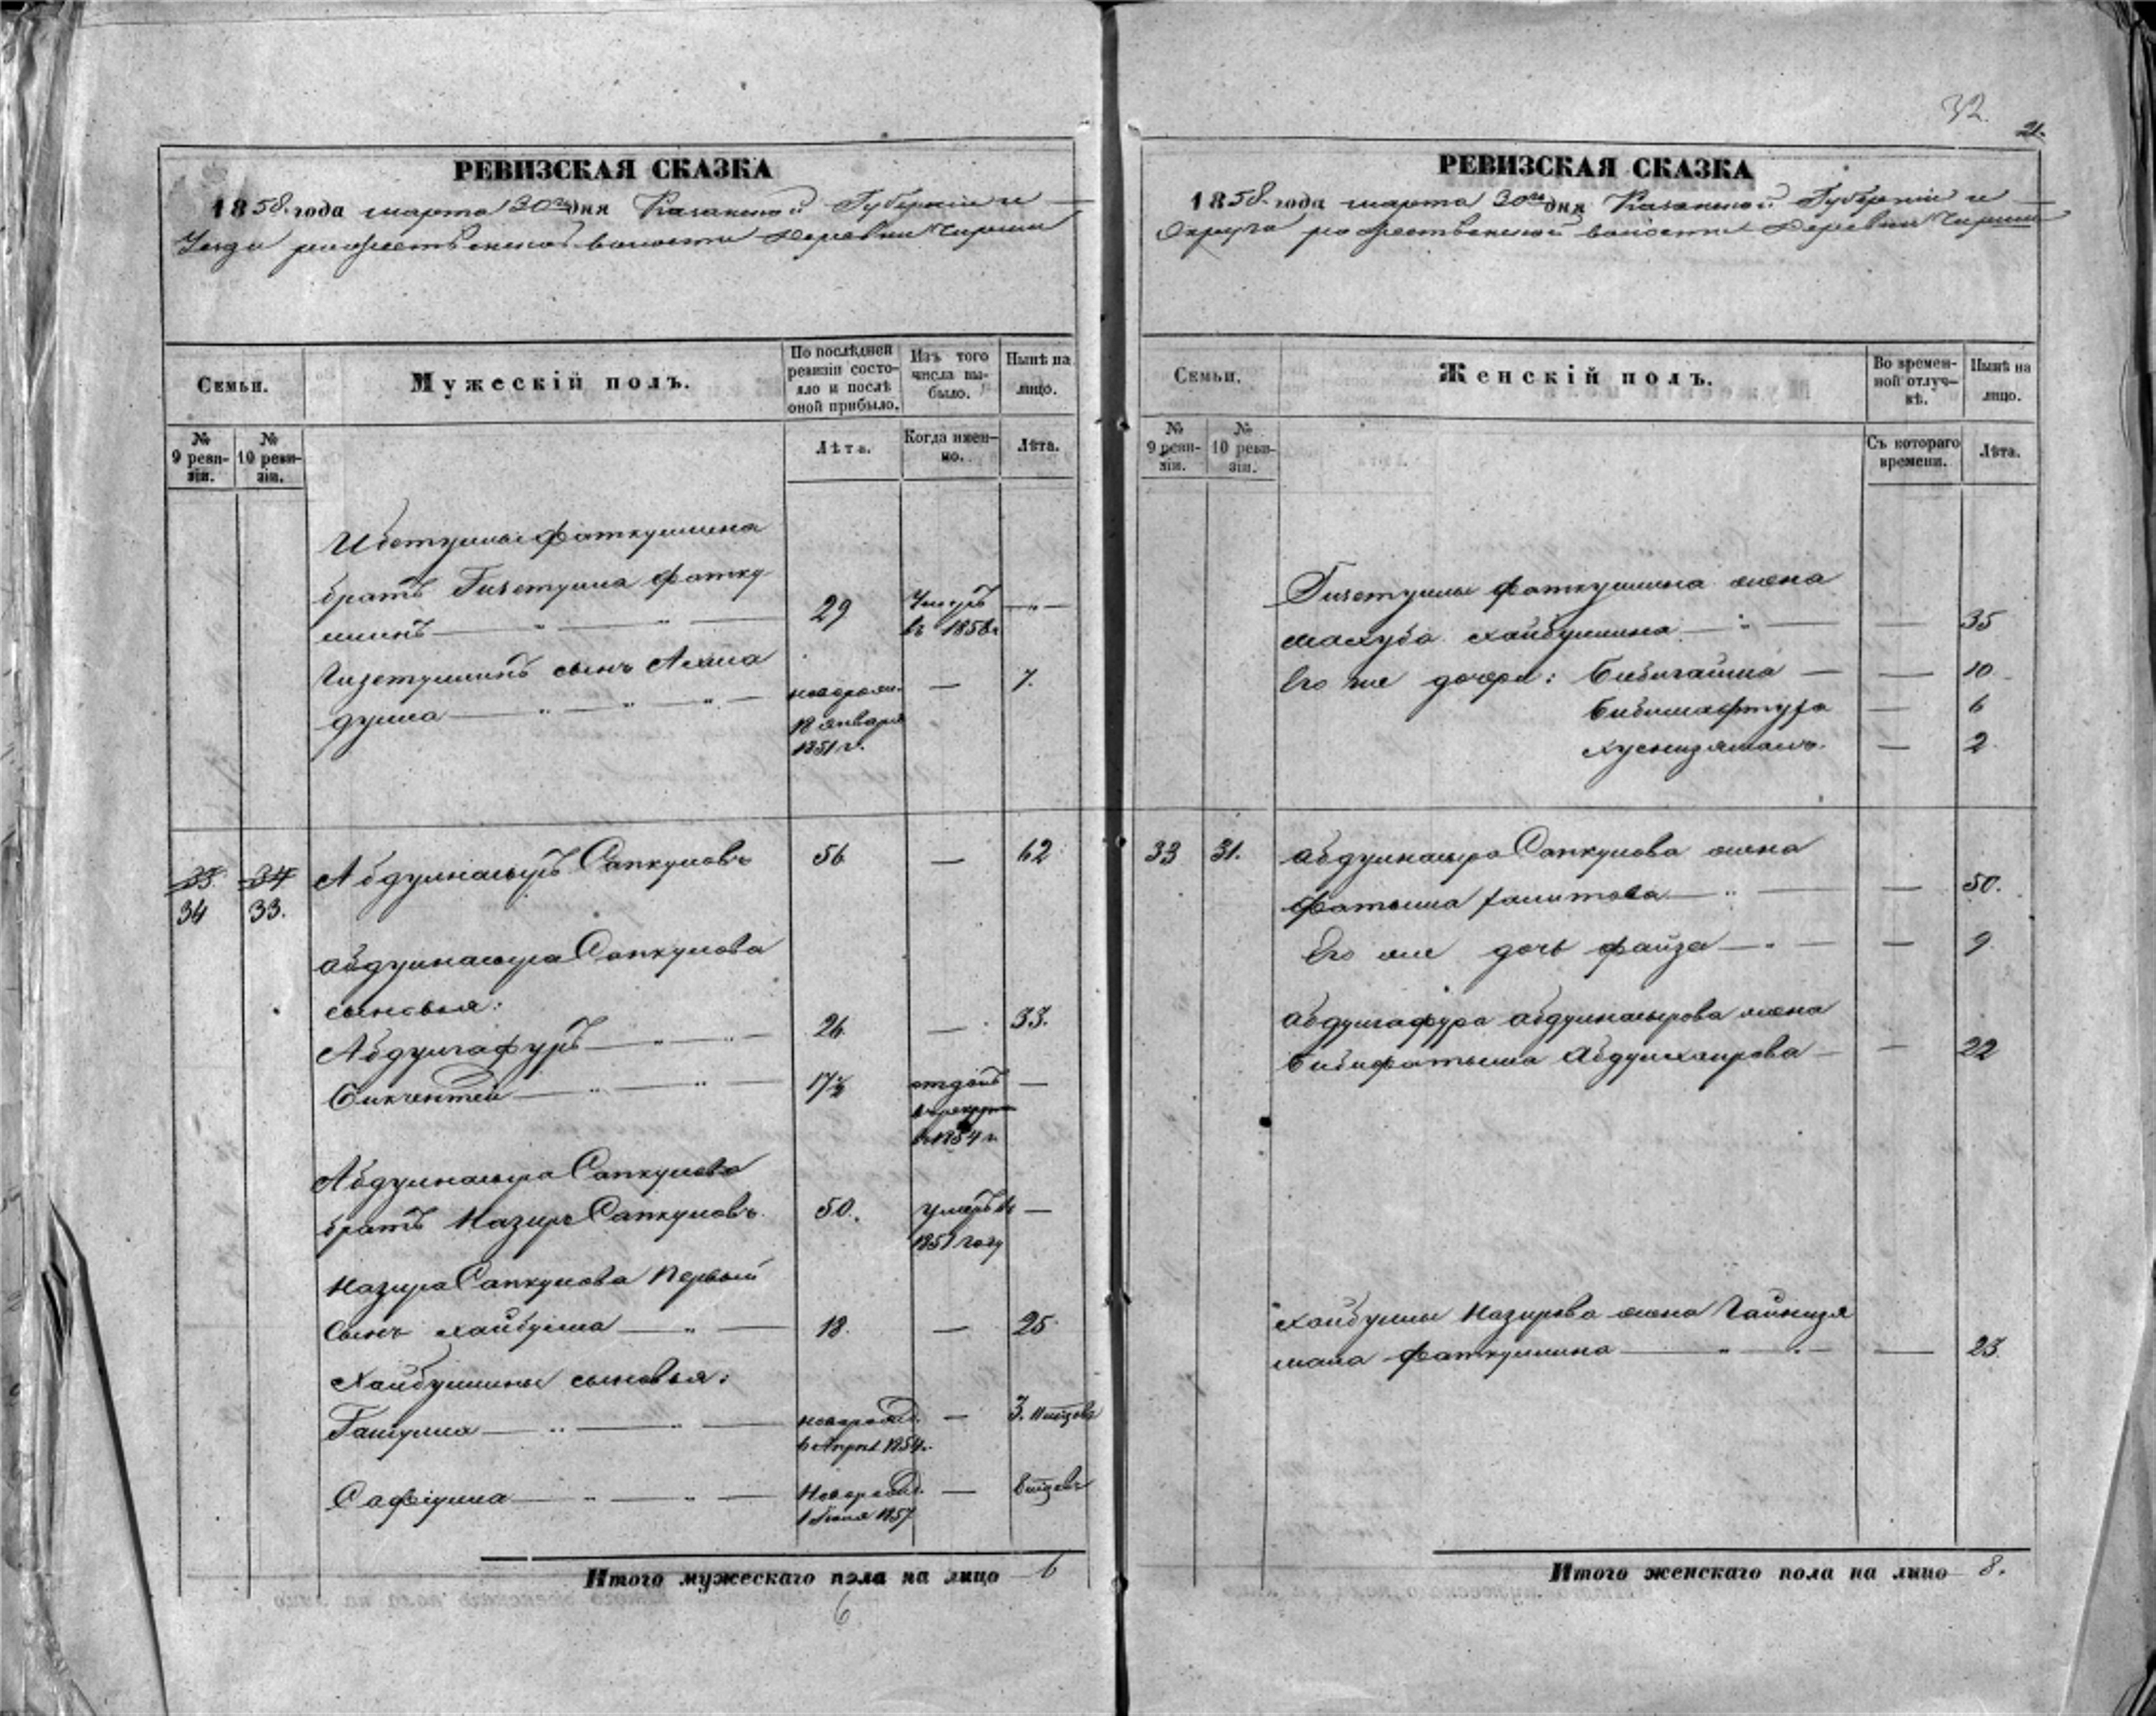 32.
21.
РЕВИЗСКАЯ СКАЗКА
1858 года марта 30го дня Казанской Губернии и
Уезда рождественской волости Деревни Чирши
Семьи.
Мужескій полъ.
По послѣдней ревизіи состояло и послѣ оной прибыло.
Изъ того числа выбыло.
Нынѣ на лицо.
№ 9 ревизіи.
№ 10 ревизіи.
Лѣта.
Когда именно.
Лѣта.
фаткуллина
братъ Гизетулла фатку
ллинъ 29 Умеръ въ 1858г
Гизетуллинъ сынъ Ахма
дулла новорожд. 18 января 1851 г. — 7.
35. 34
34 33. Абдулнасыръ Сапкуловъ 56 — 62
Абдулнасыра Сапкулова
сыновья:
Абдулгафуръ 26 — 33.
17½ отданъ в рекруты в 1854 г. —
Абдулнасыра Сапкулова
братъ Назиръ Сапкуловъ 50. умеръ въ году —
Назира Сапкулова Первый
сынъ хайбулла 18. — 25
Хайбуллины сыновья:
новорожд. 6 Апреля 1854. — 3.
Сафіулла Новорожд. 1857 —
Итого мужескаго пола на лицо 6
6
РЕВИЗСКАЯ СКАЗКА
1858 года марта 30го дня Казанской Губерніи и
Округа рождественской волости Деревни Чирши
Семьи.
Женскій полъ.
Во временной отлучкѣ.
Нынѣ на лицо.
№ 9 ревизіи.
№ 10 ревизіи.
Съ котораго времени.
Лѣта.
Гизетуллы фаткуллина жена
махуба хайбуллина — 35
Его же дочери: Бибигайша — 10
— 6
Хуснизямалъ — 2
33 31. Абдулнасыра Сапкулова жена
фатыма — 50.
Его же дочь файза — 9
Абдулгафура Абдулнасырова жена
Бибифатыма — 22
хайбуллы Назирова жена Гайнизя
мала фаткуллина — 23
Итого женскаго пола на лицо 8.